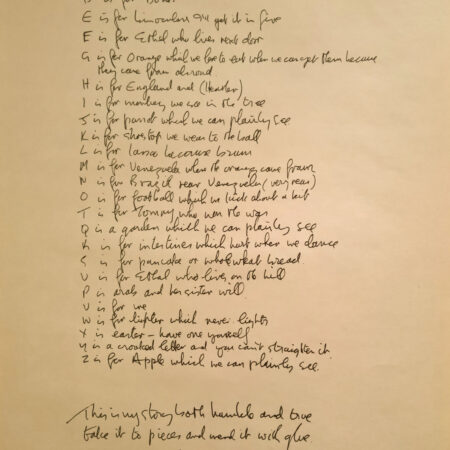 E is for binoculars get it in five
E is for Ethel who lives next door
G is for Orange which we love to eat when we can get them because
they come from abroad
H is for England and (Heather)
I is for monkey we see in the tree
J is for parrot which we can plainly see
K is for shoetop we wear to the ball
L is for because brum
M is for Venezuela where the oranges come from
N is for Brazil near Venezuela (very near)
O is for football which we kick about a bit
T is for Tommy who won the war
Q is a garden which we can plainly see
R is for intestines which hurt when we dance
S is for pancake or wholewheat bread
U is for Ethel who lives on the hill
P is arab and her sister will
V is for me
W is for lighter which never lights
X is easter - have one yourself
Y is a crooked letter and you can't straighten it
Z is for Apple which we can plainly see.
This is my story both humble and true
take it to pieces and mend it with glue